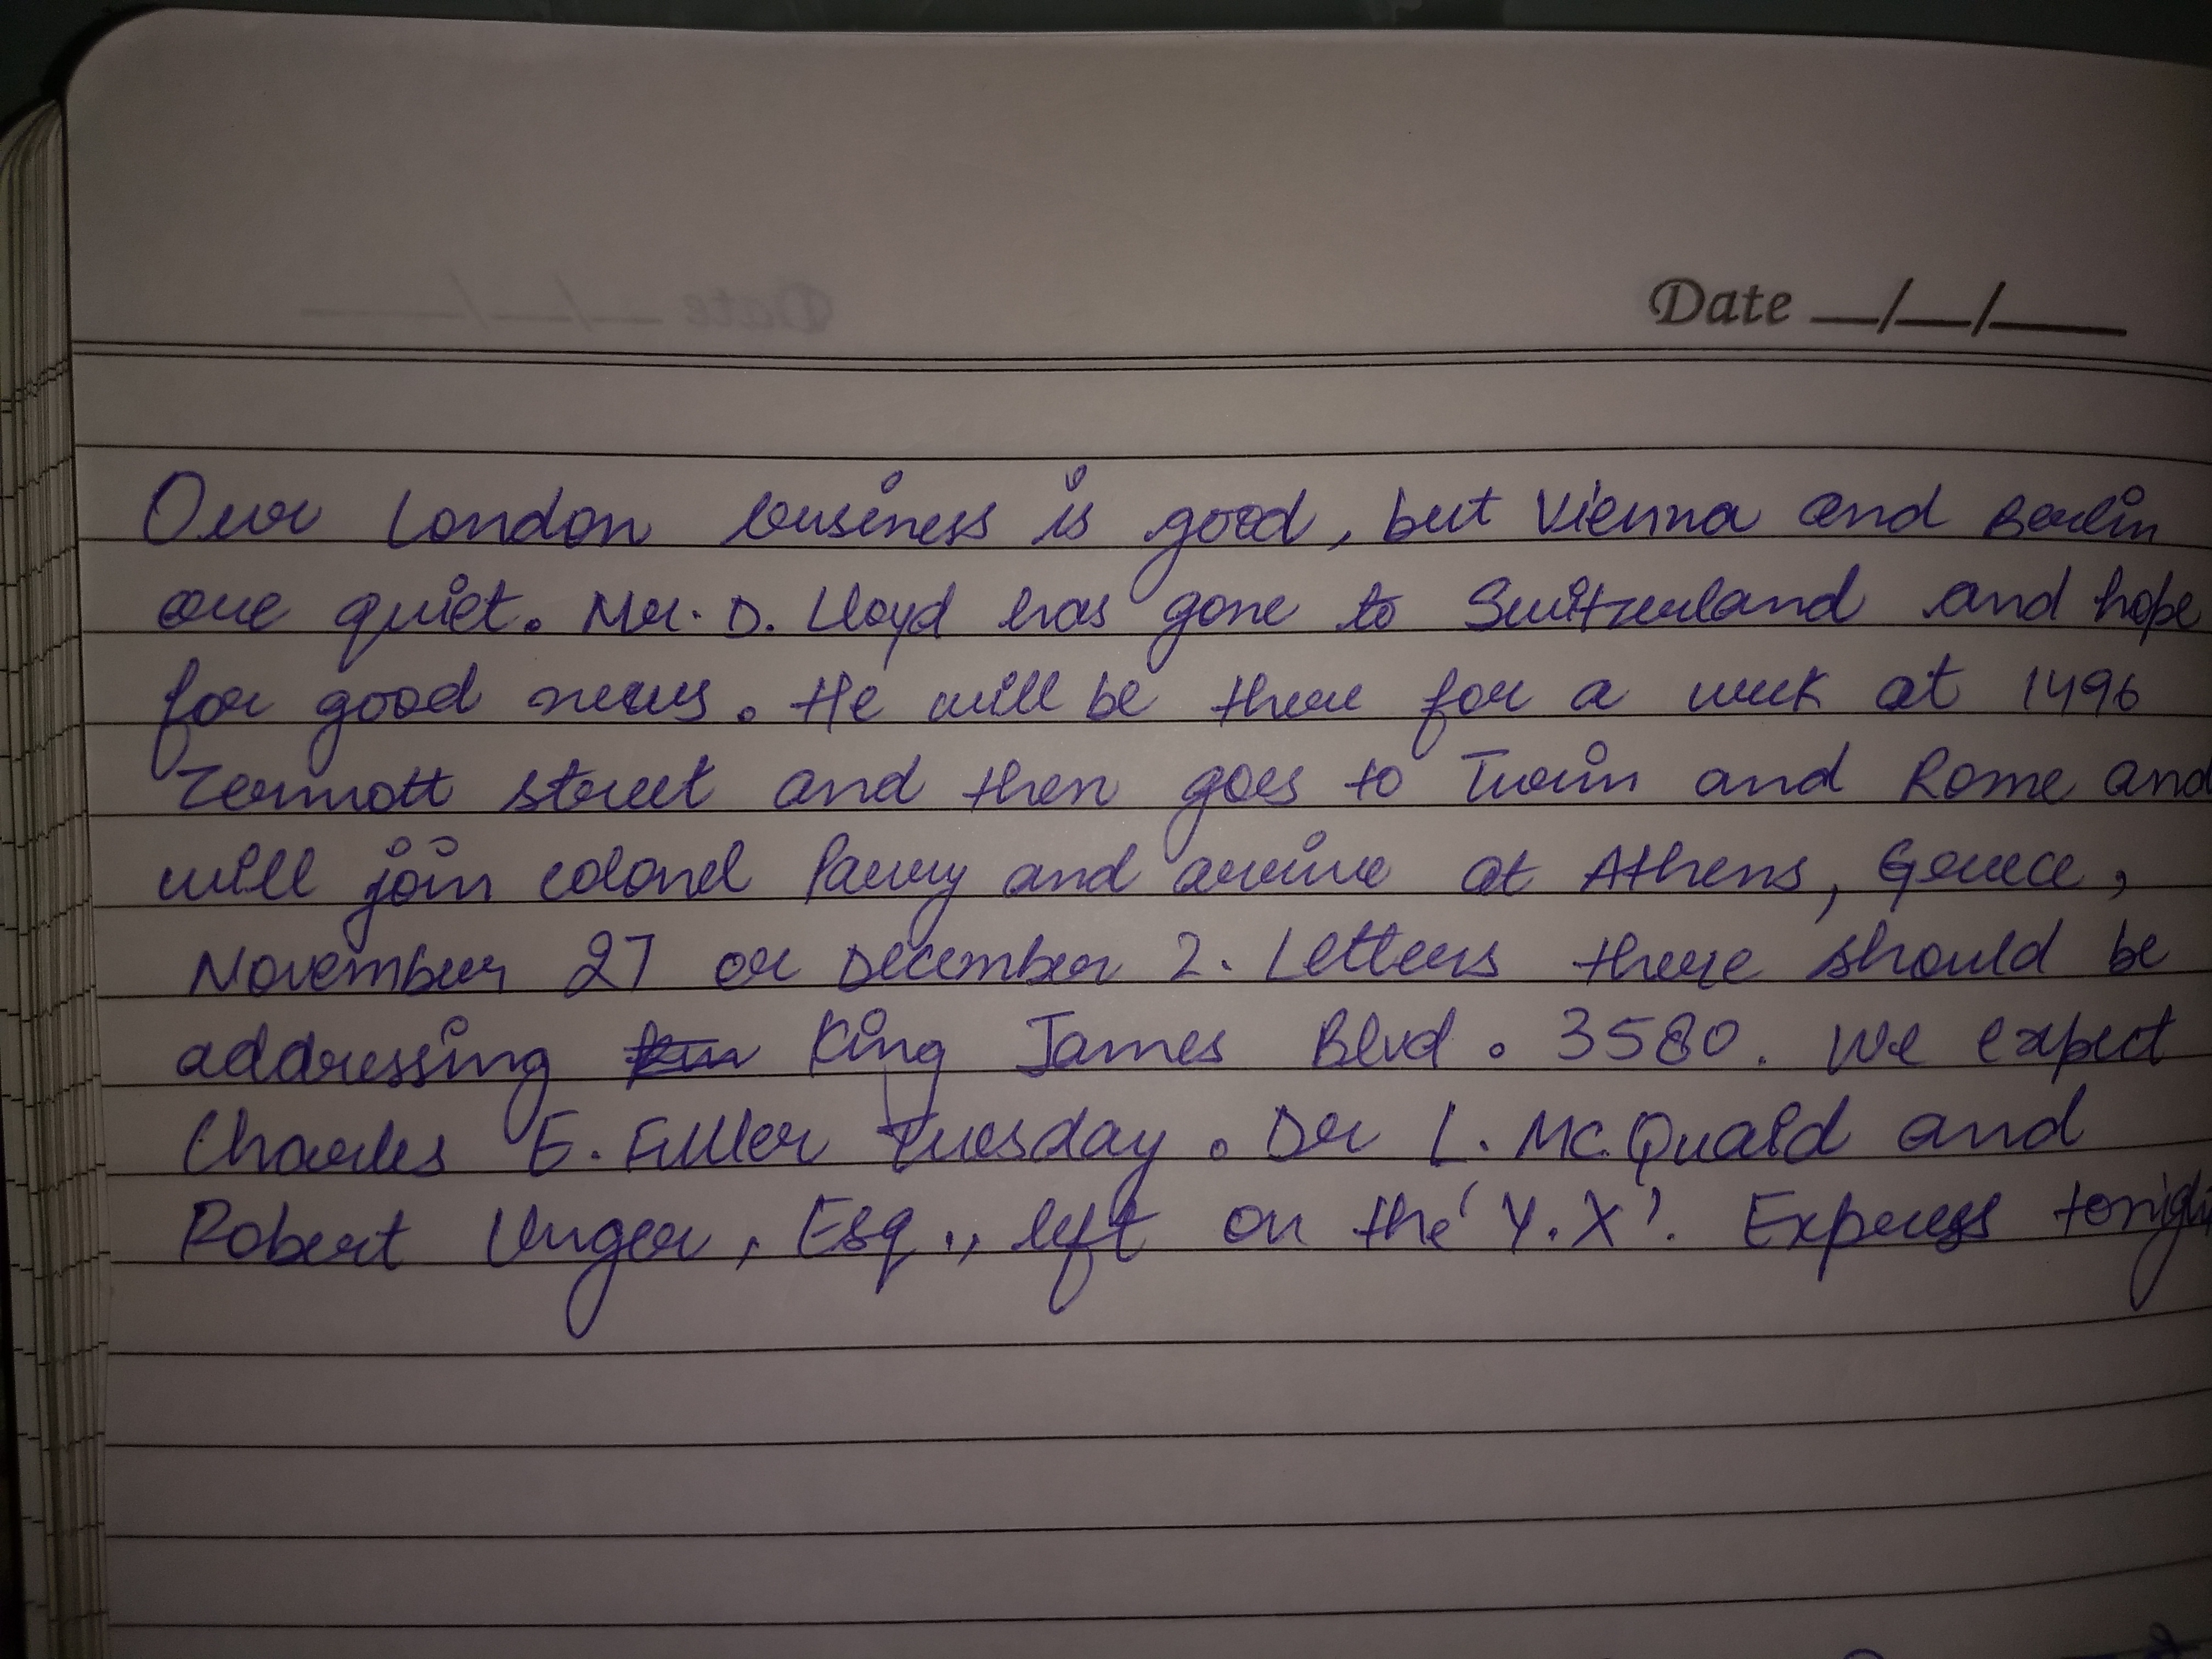 Date __/__/____
Our London business is good, but Vienna and Berlin
are quiet. Mr. D. Lloyd has gone to Switzerland and hope
for good news. He will be there for a week at 1496
Zermott street and then goes to Turin and Rome and
will join colonel Parry and arrive at Athens, Greece,
November 27 or December 2. Letters there should be
addressing King James Blvd. 3580. We expect
Charles E. Fuller Tuesday. Dr L. McQuaid and
Robert Unger, Esq., left on the 'Y.X'. Express